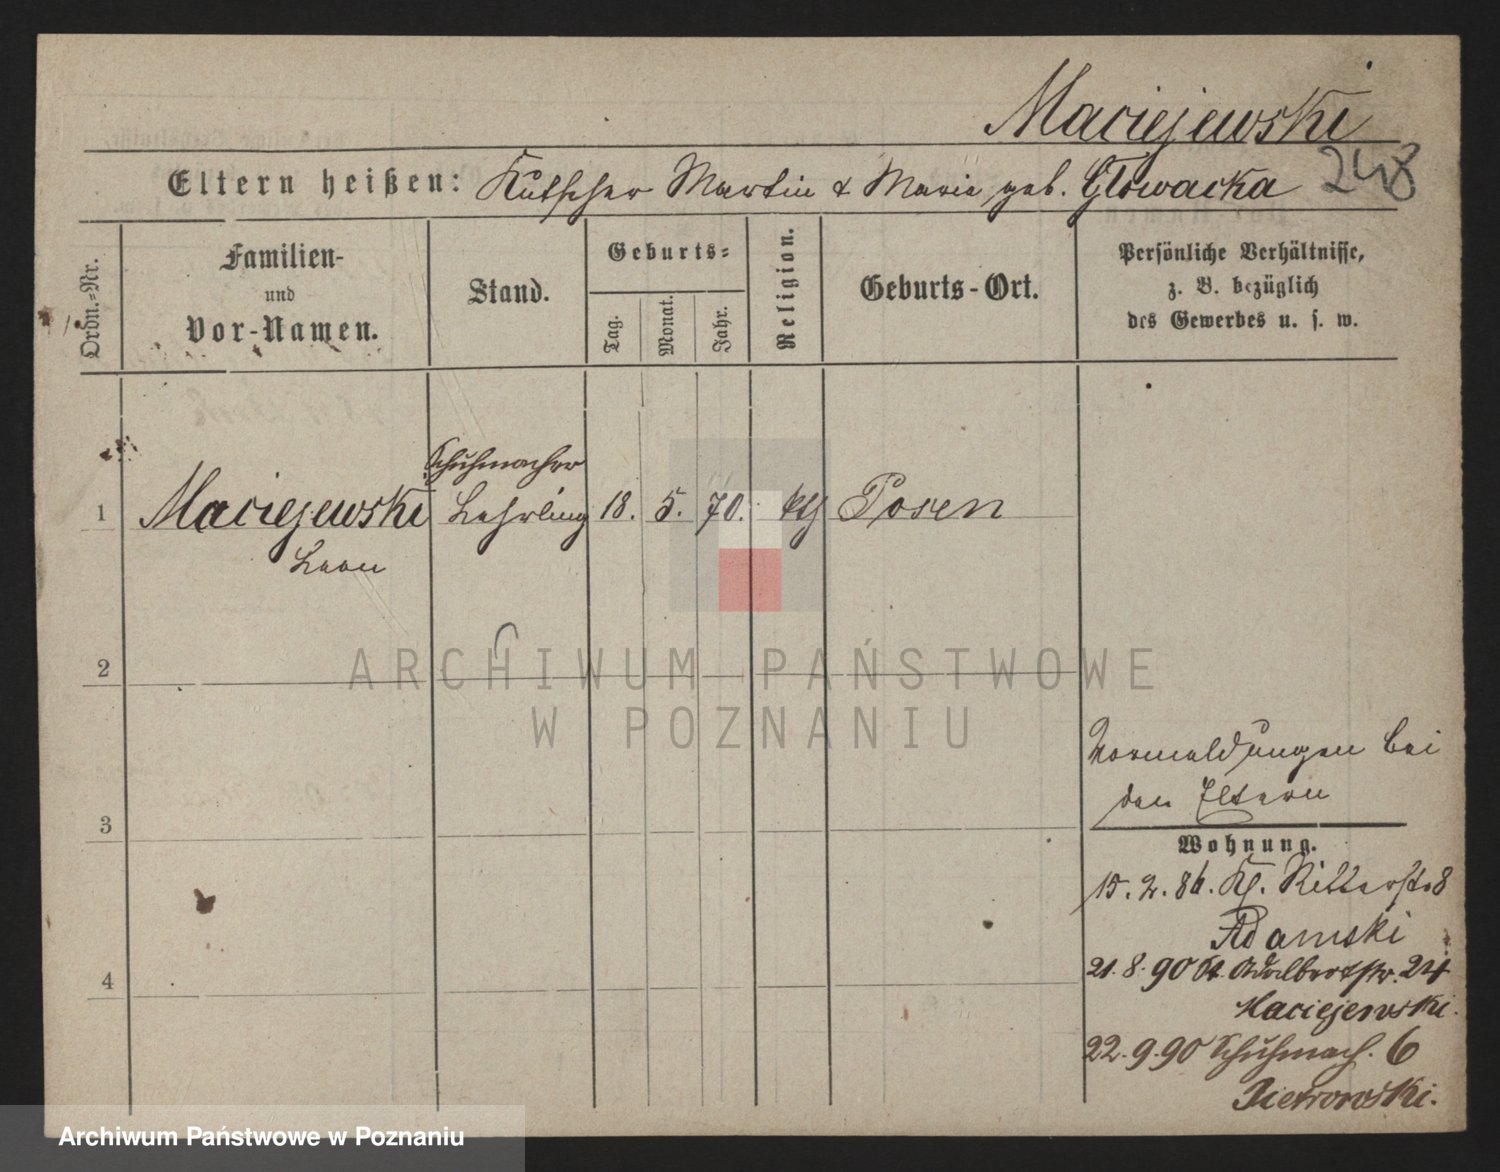 Maciejewski
248
Eltern heißen: Kutscher Martin & Marie geb. Głowacka
Ordn.=Nr.
Familien-
und
Vor-Namen.
Stand.
Geburts=
Tag.
Monat.
Jahr.
Religion.
Geburts-Ort.
Persönliche Verhältnisse,
z. B. bezüglich
des Gewerbes u. s. w.
Schuhmacher
1 Maciejewski Lehrling 18. 5. 70. kth Posen
Leon
2
ARCHIWUM PAŃSTWOWE
W POZNANIU
Vormeldungen bei
den Eltern
3
Wohnung.
15. 2. 86. Kl. Ritterstr 8
Adamski
4
21. 8. 90 St. Adalbertstr. 24
Maciejewski.
22. 9. 90 Schuhmach. 6
Pietrowski.
Archiwum Państwowe w Poznaniu